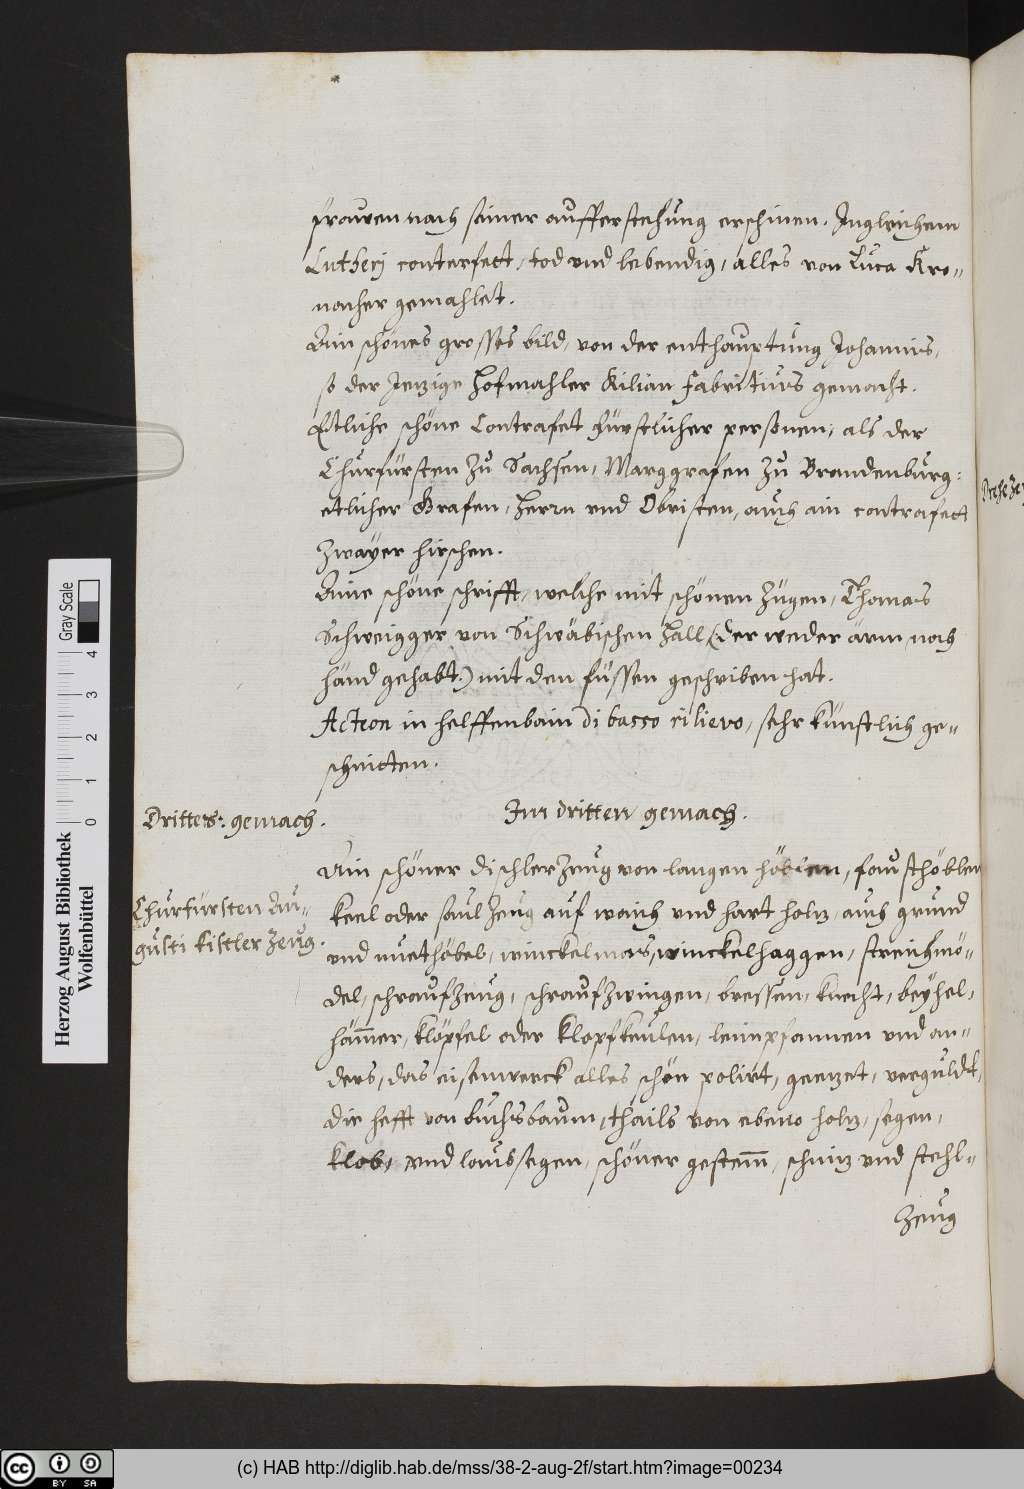 frawen nach seiner aufferstehung erschinen. Ingleichem
Lutherj conterfect, tod und lebendig, alles von Luca Kro-
nacher gemahlet.
Ain schönes grosses bild, von der enthauptung Johannis,
so der Jenzige Hofmahler Kilian Fabritius gemacht.
Etliche schöne Contrafet fürstlicher personen, als der
Churfürsten zu Sachsen, Marggrafen zu Brandenburg:
etlicher Grafen, Herrn und Obristen, auch ain contrafect
zwayer hirschen.
Aine schöne schrifft, welche mit schönen zügen, Thomas
Schweigger von Schwäbischen Hall (der weder ärm noch
händ gehabt.) mit den füssen geschriben hat.
Acteon in helffenbain di basso rilievo, sehr künstlich ge-
schnitten.
Dritters: gemach.
Im dritten gemach.
Churfürsten Au-
gusti kistler zeug.
Ain schöner dischlerzeug von langen höblen, fausthöblen
keel oder saul zeug auf waich und hart holtz, auch grund
und nuethöbel, winckelmas, winckelhaggen, streichmö-
del, schraufzeug, schraufzwingen, bressen, knecht, beyhel,
häm̄er, klöpfel oder klopfkeulen, leimpfannen und an-
ders, das eisenwerck alles schön polirt, geetzet, verguldt,
die hefft von buchsbaum, thails von ebeno holtz, segen,
klob, und laubsegen, schöner gestem̄, schnitz und stehl-
zeug
Herzog August Bibliothek
Wolfenbüttel
0 1 2 3 4
Gray Scale
(c) HAB http://diglib.hab.de/mss/38-2-aug-2f/start.htm?image=00234
cc BY SA